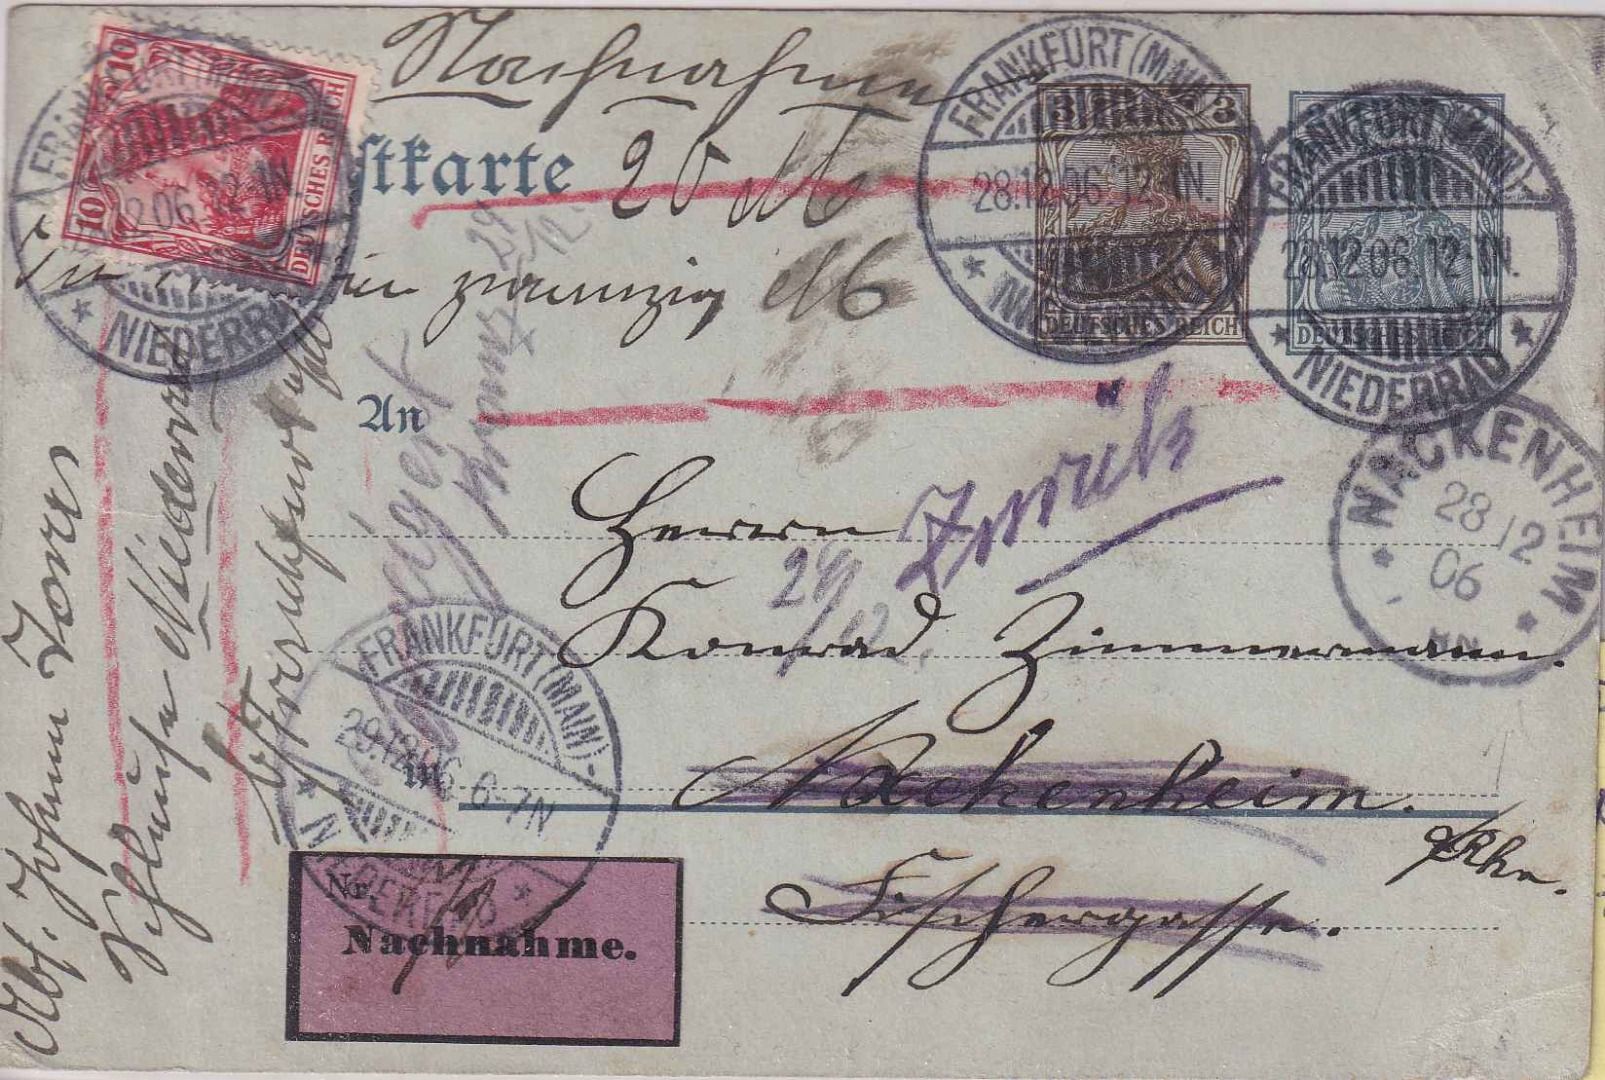 Nachnahme
Postkarte 20 M
zwanzig M
An
Zurück
Herrn
29/12.
Konrad Zimmermann.
Nackenheim.
a/Rhn.
Fischergasse.
Abs. Johann
Niederrad
b/Frankfurt
Nr.
Nachnahme.
10
10
DEUTSCHES REICH
3
3
DEUTSCHES REICH
2
2
DEUTSCHES REICH
FRANKFURT (MAIN)-
28.12.06.12-1N.
* NIEDERRAD *
FRANKFURT (MAIN)-
28.12.06.12-1N.
* NIEDERRAD *
FRANKFURT (MAIN)-
28.12.06.12-1N.
* NIEDERRAD *
NACKENHEIM
28/12
06
FRANKFURT (MAIN)-
29.12.06. 6-7N
* NIEDERRAD *